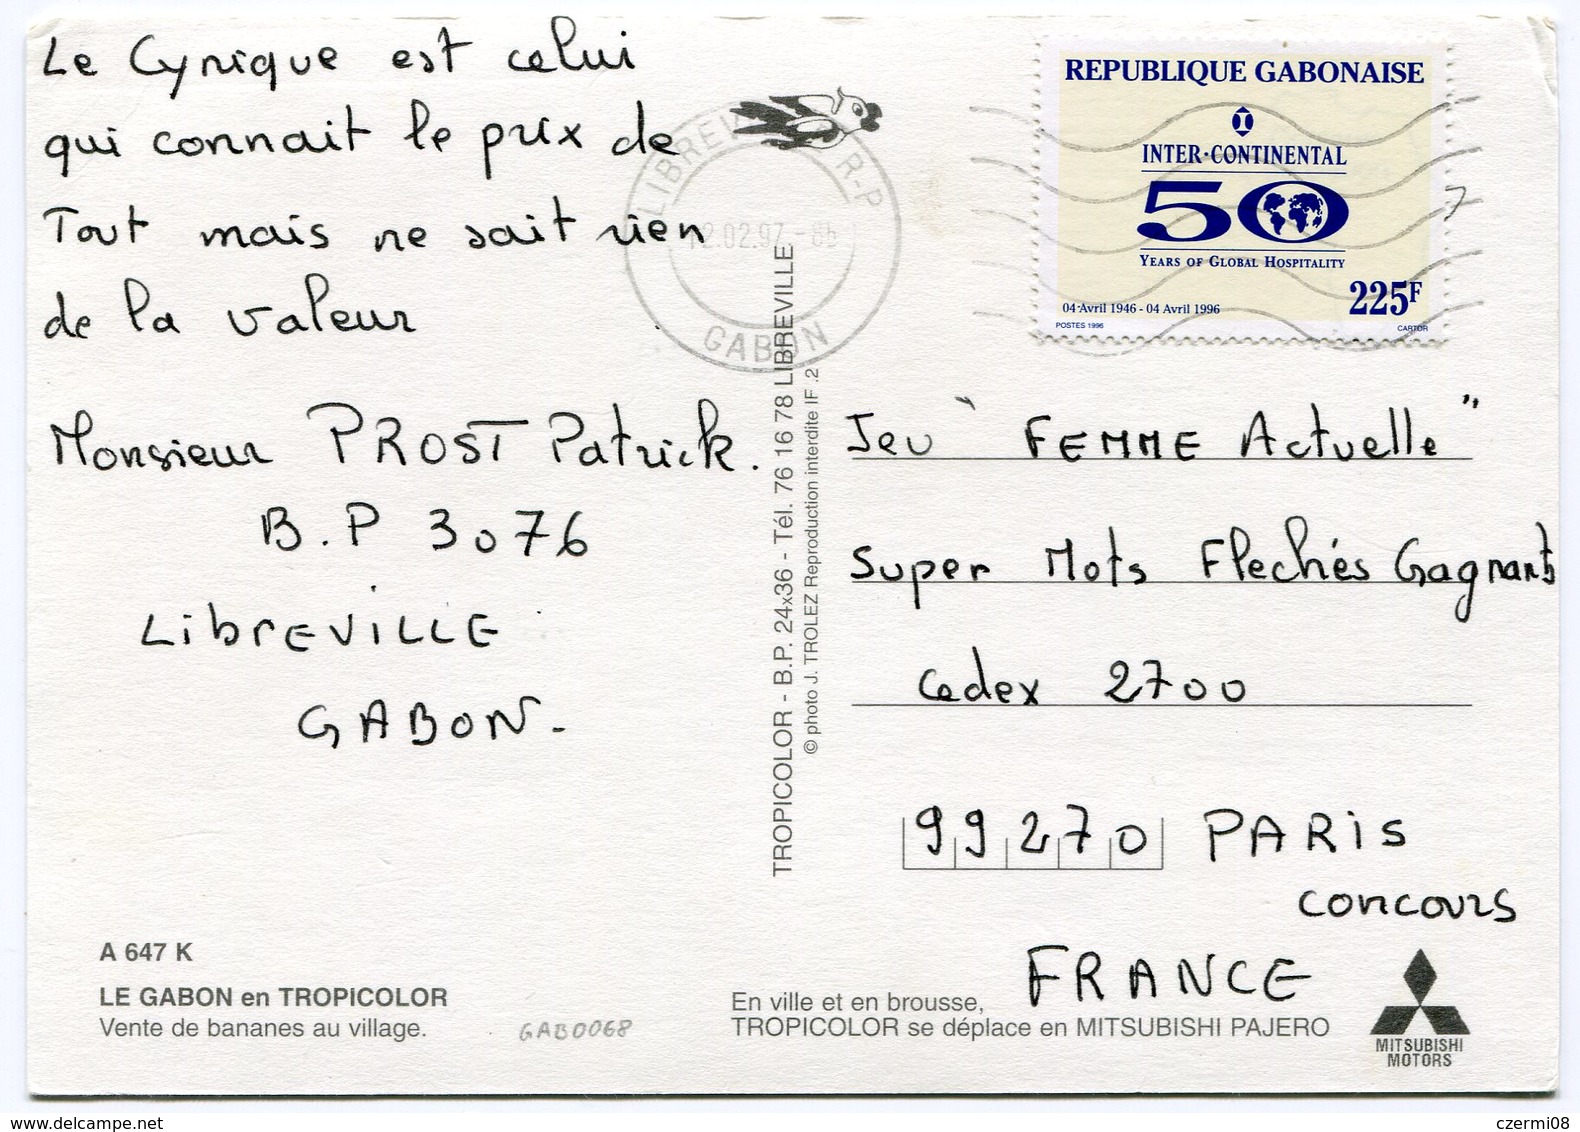 Le Cynique est celui
qui connait le prix de
Tout mais ne sait rien
de la valeur
Monsieur PROST Patrick.
B.P 3076
LibrEVILLE
GABON-
A 647 K
LE GABON en TROPICOLOR
Vente de bananes au village.
GAB0068
LIBREVILLE R-P
12.02.97
GABON
TROPICOLOR - B.P. 24x36 - Tél. 76 16 78 LIBREVILLE
© photo J. TROLEZ Reproduction interdite IF .2
REPUBLIQUE GABONAISE
INTER·CONTINENTAL
50
YEARS OF GLOBAL HOSPITALITY
225F
04 Avril 1946 - 04 Avril 1996
POSTES 1996
CARTOR
Jeu " FEMME Actuelle "
Super Mots Flechés Gagnants
Cedex 2700
99270 PARiS
concours
FRANCE
En ville et en brousse,
TROPICOLOR se déplace en MITSUBISHI PAJERO
MITSUBISHI
MOTORS
www.delcampe.net
czermi08